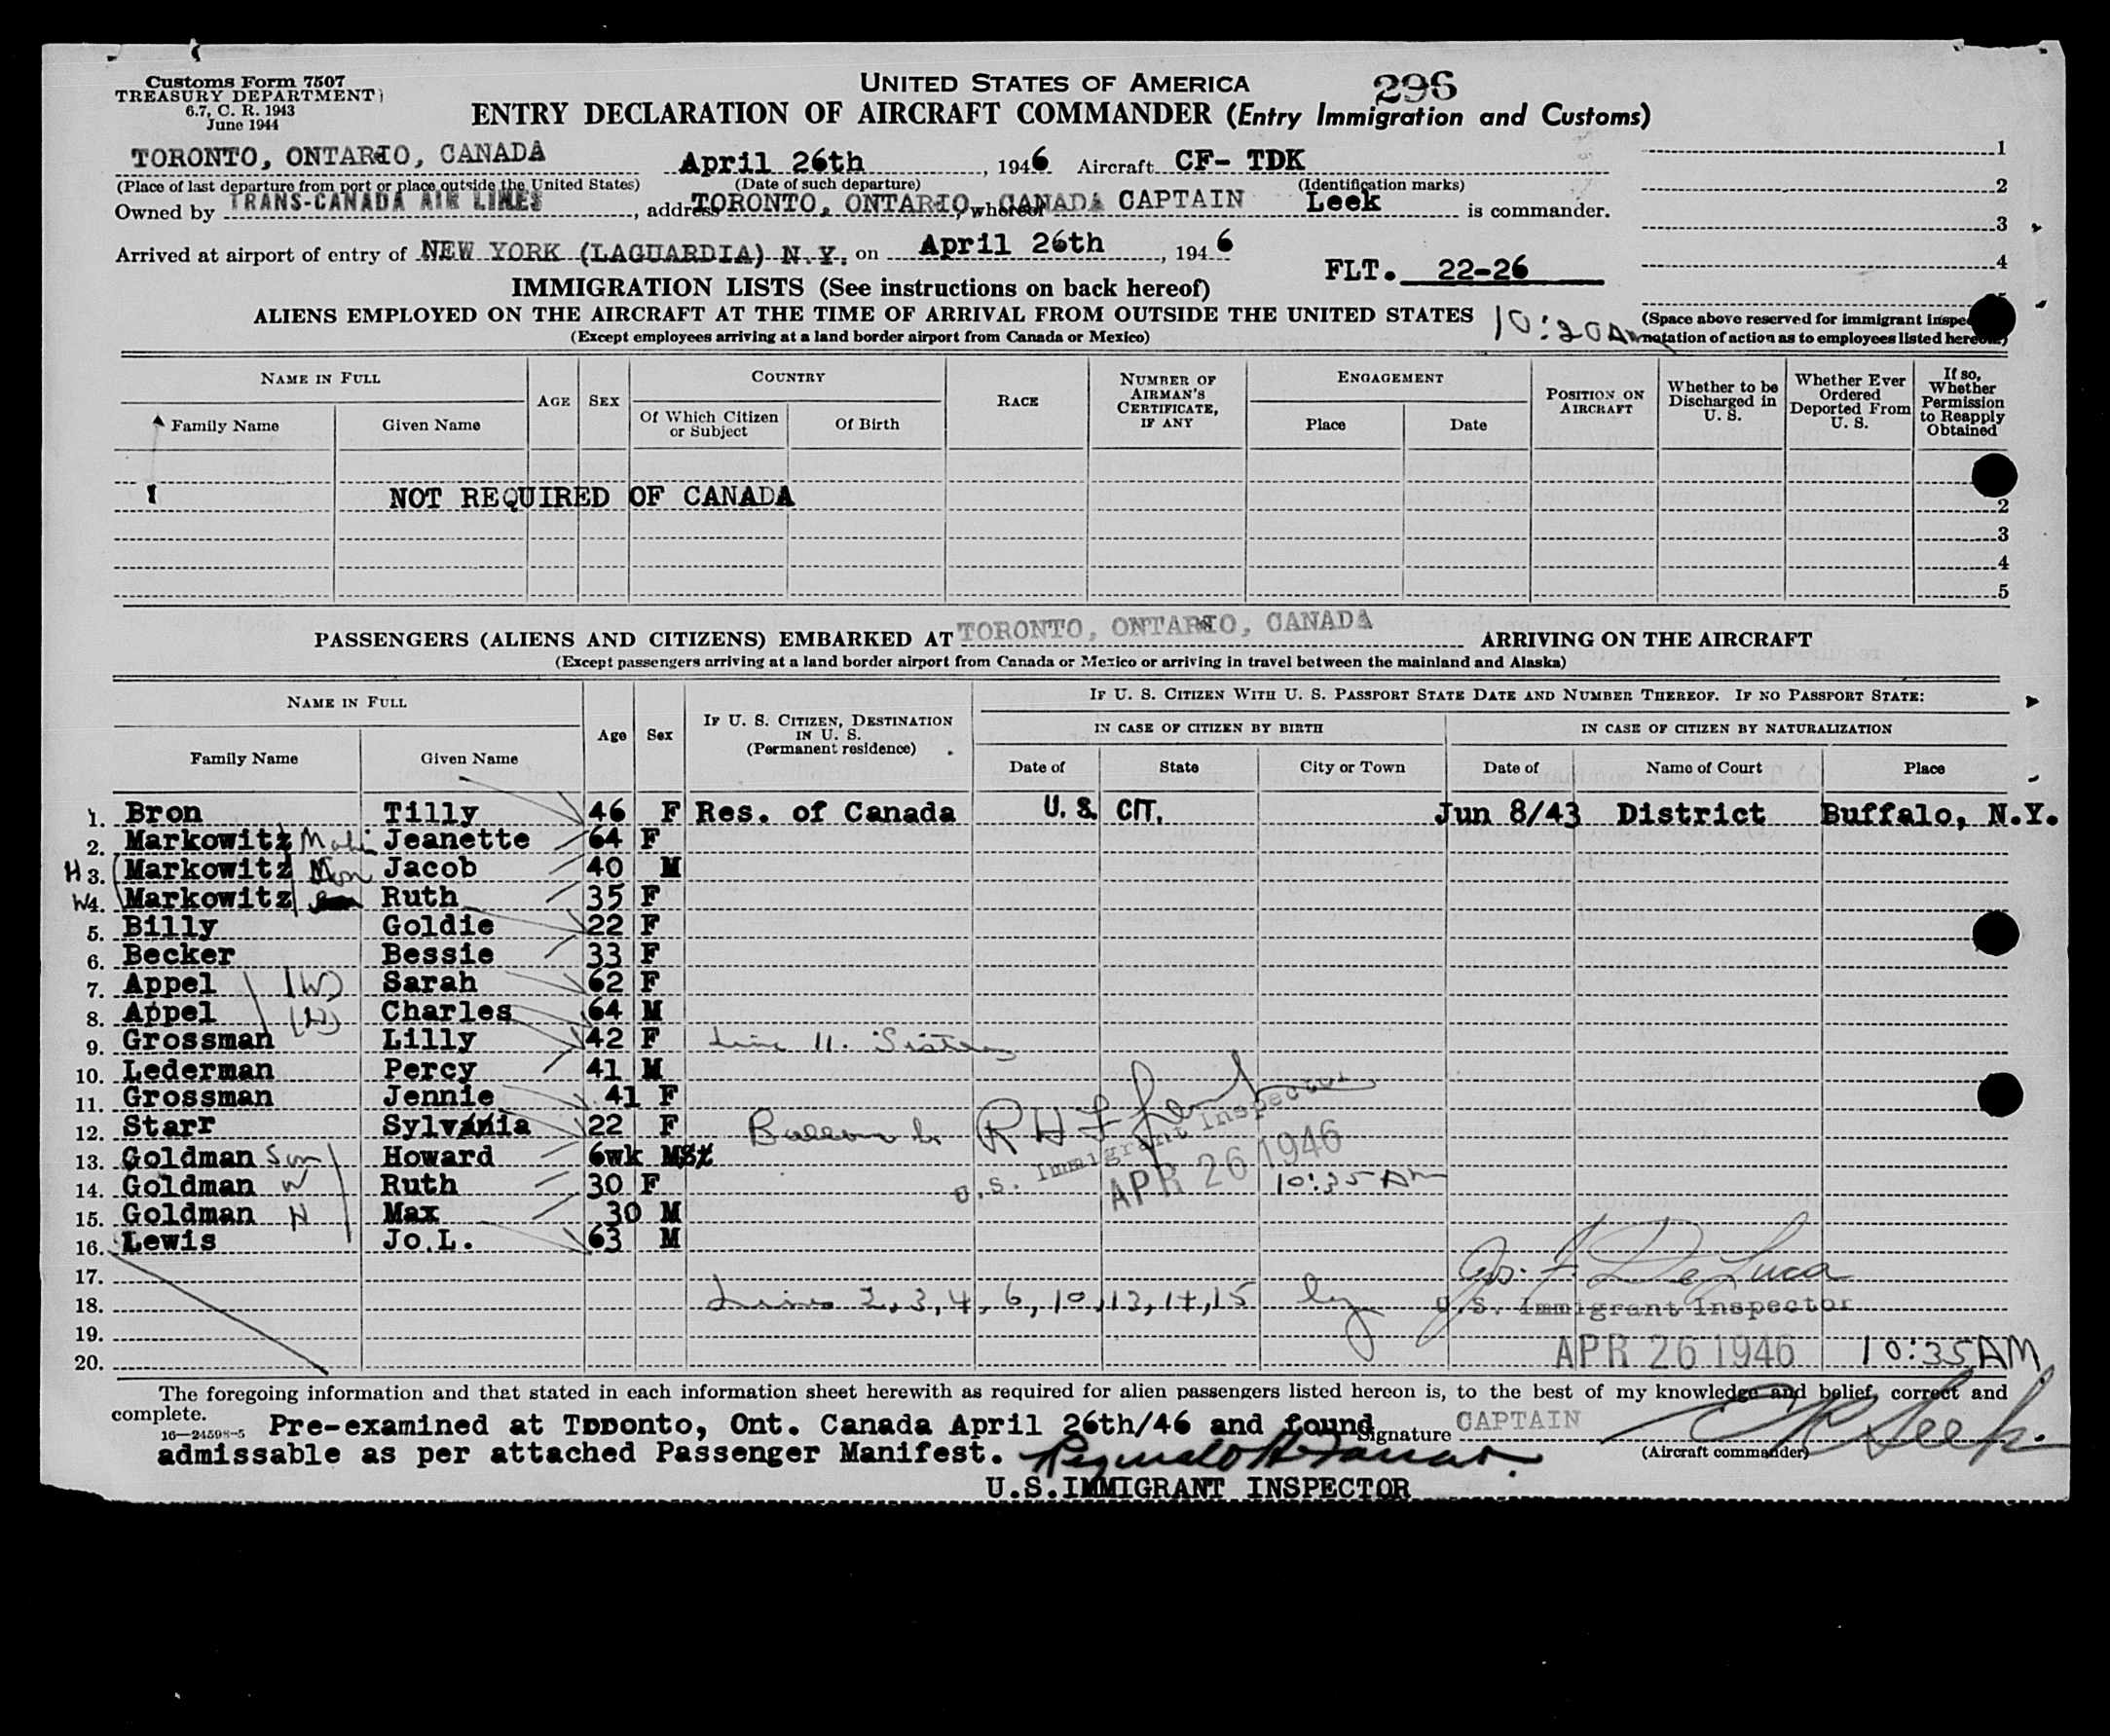 Customs Form 7507
TREASURY DEPARTMENT
6.7, C. R. 1943
June 1944
UNITED STATES OF AMERICA
296
ENTRY DECLARATION OF AIRCRAFT COMMANDER (Entry Immigration and Customs)
TORONTO, ONTARIO, CANADA April 26th, 1946 Aircraft CF- TDK
(Place of last departure from port or place outside the United States) (Date of such departure) (Identification marks)
Owned by TRANS-CANADA AIR LINES, address TORONTO, ONTARIO, whereof CANADA CAPTAIN Leek is commander.
Arrived at airport of entry of NEW YORK (LAGUARDIA) N.Y. on April 26th, 1946
FLT. 22-26
1
2
3
4
5
IMMIGRATION LISTS (See instructions on back hereof)
ALIENS EMPLOYED ON THE AIRCRAFT AT THE TIME OF ARRIVAL FROM OUTSIDE THE UNITED STATES 10:20AM
(Except employees arriving at a land border airport from Canada or Mexico)
(Space above reserved for immigrant inspe
notation of action as to employees listed hereon.)
NAME IN FULL AGE SEX COUNTRY RACE NUMBER OF AIRMAN'S CERTIFICATE, IF ANY ENGAGEMENT POSITION ON AIRCRAFT Whether to be Discharged in U. S. Whether Ever Ordered Deported From U. S. If so, Whether Permission to Reapply Obtained
Family Name Given Name Of Which Citizen or Subject Of Birth Place Date
1 NOT REQUIRED OF CANADA
2
3
4
5
PASSENGERS (ALIENS AND CITIZENS) EMBARKED AT TORONTO, ONTARIO, CANADA ARRIVING ON THE AIRCRAFT
(Except passengers arriving at a land border airport from Canada or Mexico or arriving in travel between the mainland and Alaska)
NAME IN FULL Age Sex IF U. S. CITIZEN, DESTINATION IN U. S. (Permanent residence) IF U. S. CITIZEN WITH U. S. PASSPORT STATE DATE AND NUMBER THEREOF. IF NO PASSPORT STATE:
IN CASE OF CITIZEN BY BIRTH IN CASE OF CITIZEN BY NATURALIZATION
Family Name Given Name Date of State City or Town Date of Name of Court Place
1. Bron Tilly 46 F Res. of Canada U.S. CIT. Jun 8/43 District Buffalo, N.Y.
2. Markowitz Jeanette 64 F
H 3. Markowitz Son Jacob 40 M
W 4. Markowitz Ruth 35 F
5. Billy Goldie 22 F
6. Becker Bessie 33 F
7. Appel (W) Sarah 62 F
8. Appel (H) Charles 64 M
9. Grossman Lilly 42 F Line 11. Sisters
10. Lederman Percy 41 M
11. Grossman Jennie 41 F
12. Starr Sylvania 22 F Balance by R H F
13. Goldman Son Howard 6wk M
U.S. Immigrant Inspector
14. Goldman W Ruth 30 F APR 26 1946 10:35 AM
15. Goldman H Max 30 M
16. Lewis Jo.L. 63 M
17. Jos. F. DeLuca
18. Lines 2,3,4, 6, 10, 13, 14, 15 by U.S. Immigrant Inspector
19.
20. APR 26 1946 10:35 AM
The foregoing information and that stated in each information sheet herewith as required for alien passengers listed hereon is, to the best of my knowledge and belief, correct and
complete.
16—24598-5 Pre-examined at Toronto, Ont. Canada April 26th/46 and found Signature CAPTAIN Leek.
admissable as per attached Passenger Manifest. (Aircraft commander)
U.S.IMMIGRANT INSPECTOR